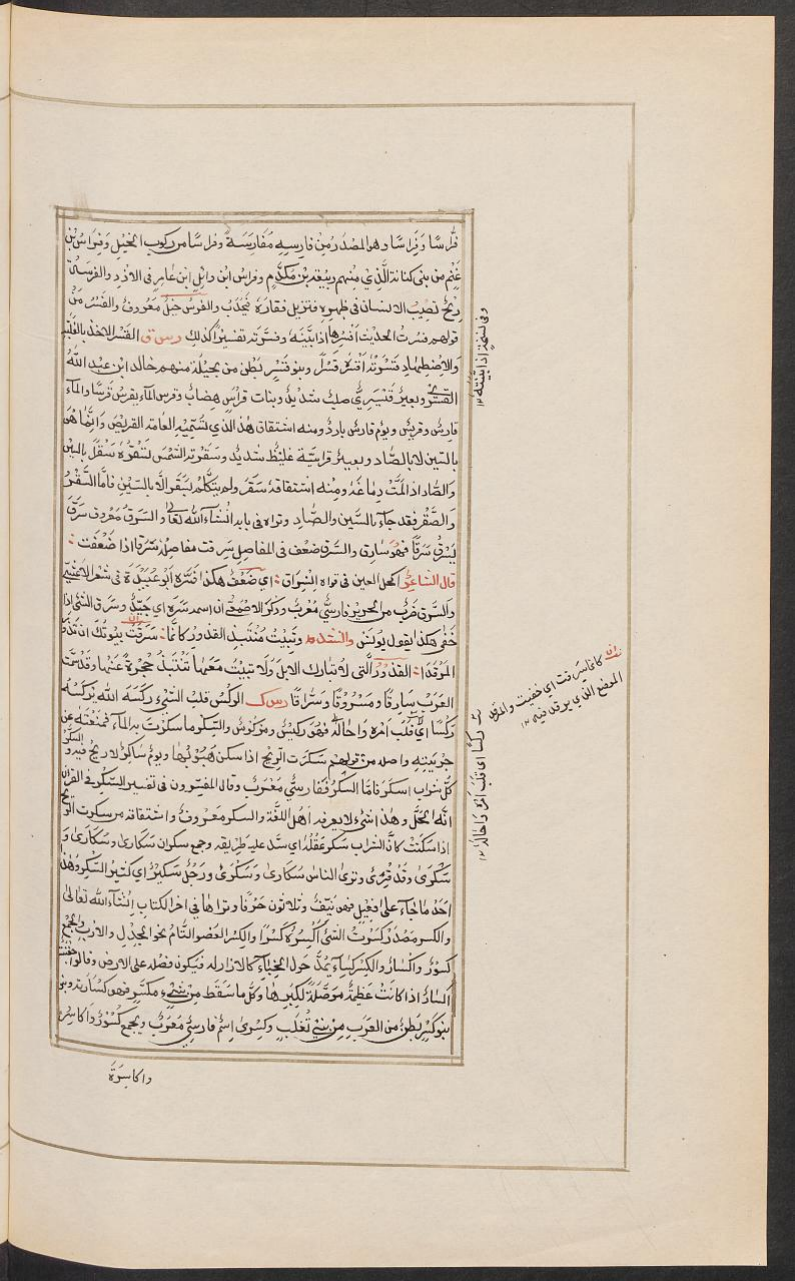 فراسا وفراسا وهو المصدر من فارسه مفارسة وفراسا من ركوب الخيل وفراس بن
غنم من بنى كنانة الذي منهم ربيعه بن مكدم وفراس ابن وائل ابن عامر فى الازد والفرسة
ريح تصيب الانسان فى ظهره فتزيل فقاره فيحدب والفرس جبل معروف والفسر من
قولهم فسرت الحديث افسرها اذا بيّنته وفسّرته تفسيرا كذلك رس ق القسر الاخذ بالغلبة
والاضطهاد قسرته اقسره قسرا وبنو قسر بطن من بجيلة منهم خالد ابن عبد الله
القسرى وبعير قيسري صلب شديد وبنات قراس هضاب وقرس الماء يقرس قرسا والماء
قارس وقريس ويوم قارس بارد ومنه اشتقاق هذا الذي تسميه العامة القريص وانما هو
بالسين لا بالصاد وبعير قراسية غليظ شديد وسقرته الشمس تسقره سقرا بالسين
والصاد اذا المت دماغه ومنه اشتقاقة سقر ولم يتكلم بسقر الا بالسين فاما السقر
والصقر فقد جاء بالسين والصاد وتراه فى بابه انشاء الله تعالى والسرق معروف سرق
يسرق سرقا فهو سارق والسرق ضعف فى المفاصل سرقت مفاصله سرقا اذا ضعفت
قال الشاعر اكحل العين فى قواه انسراق اي ضعف هكذا فسره ابو عبيدة فى شعر الاعشى
والسرق ضرب من الحرير فارسي معرب وذكر الاصمعى ان اسمه سره اي جيد وسرق الشئ اذا
خفى هكذا يقول يونس وانشد وتبيت منتبذ القدور كانما سرقت بيوتك ان تزور
المرقدا القذور التى لا تبارك الابل ولا تبيت معها تنتبذ حجرة عنها وقد سمت
العرب سارقا ومسروقا وسراقا رس ك الركس قلب الشئ ركسه الله يركسه
ركسا اي قلب امره واحاله فهو ركيس ومركوس والسكر ما سكرت به الماء فمنعته عن
جريته واصله من قولهم سكرت الريح اذا سكن هبوبها ويوم ساكر لا ريح فيه والسكر
كل شراب اسكر فاما السكر ففارسي معرب وقال المفسرون فى تفسير السكر فى القران
انه الخل وهذا شئ لا يعرفه اهل اللغة والسكر معروف واشتقاقه من سكرت الريح
اذا سكنت كان الشراب سكر عقله اي سد عليه طريقه وجمع سكران سكارى وسكارى و
سكرى وقد قرئ وترى الناس سكارى وسكرى ورجل سكير اي كثير السكر وهذا
احد ما جاء على فعيل فهو نيف وثلاثون حرفا وتراها فى اخر الكتاب انشاء الله تعالى
والكسر مصدر كسرت الشئ اكسره كسرا والكسر العضو التام نحو الجدل والارب والجمع
كسور واكسار والكسر كساء يمد حول الخباء كالازار له فيكون فضله على الارض وقالوا جفنة
اكسار اذا كانت عظيمة موصلة لكبرها وكل ما سقط من شئ مكسر فهو كسارته وبنو
بنو كسر بطن من العرب من بني تغلب وكسرى اسم فارسي معرب ويجمع كسور واكاسر
واكاسرة
وفى نسخة اذا بيّنته ١٢
كانما سرقت اي خفيت والمرقد
الموضع الذي يرقد فيه ١٢
ركسا اي قلب امره واحاله ١٢